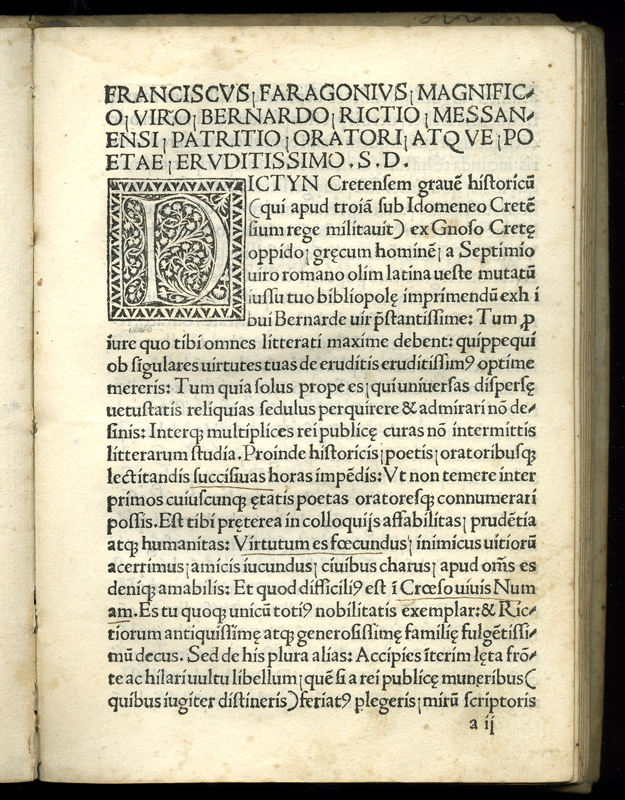 FRANCISCVS¡FARAGONIVS¡MAGNIFIC⸗
O¡VIRO¡BERNARDO¡RICTIO¡MESSAN⸗
ENSI¡PATRITIO¡ORATORI¡ATQVE¡PO
ETAE¡ERVDITISSIMO.S.D.
DICTYN Cretenſem grauē hiſtoricū
(qui apud troiā ſub Idomeneo Cretē
ſium rege militauit) ex Gnoſo Cretę
oppido¡gręcum hominē¡a Septimio
uiro romano olim latina ueſte mutatū
iuſſu tuo bibliopolę imprimendū exh i
bui Bernarde uir p̄ſtantiſſime: Tum ꝓ
iure quo tibi omnes litterati maxime debent: quippequi
ob ſigulares uirtutes tuas de eruditis eruditiſſimꝰ optime
mereris: Tum quia ſolus prope es¡qui uniuerſas diſperſę
uetuſtatis reliquias ſedulus perquirere & admirari nō de⸗
ſinis: Interqꝫ multiplices rei publicę curas nō intermittis
litterarum ſtudia. Proinde hiſtoricis¡poetis¡oratoribuſqꝫ
lectitandis ſucciſiuas horas impēdis: Vt non temere inter
primos cuiuſcunqꝫ ętatis poetas oratoreſqꝫ connumerari
poſſis. Eſt tibi pręterea in colloquijs affabilitas¡prudētia
atqꝫ humanitas: Virtutum es fœcundus¡inimicus uitiorū
acerrimus¡amicis iucundus¡ciuibus charus¡apud om̄s es
deniqꝫ amabilis: Et quod difficiliꝰ est ī Crœſo uiuis Num
am. Es tu quoqꝫ unicū totiꝰ nobilitatis exemplar: & Ric⸗
tiorum antiquiſſimę atqꝫ generoſiſſimę familię fulgētiſſi⸗
mū decus. Sed de his plura alias: Accipies īterim lęta frō⸗
te ac hilari uultu libellum¡quē ſi a rei publicę muneribus(
quibus iugiter diſtineris)feriatꝰ plegeris¡mirū ſcriptoris
a ij